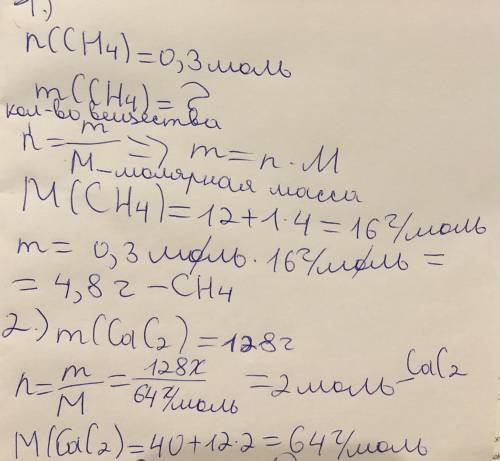 1.)
n(CH4)=0,3моль
m(CH4)=?
кол-во вещества
n=m/M => m=n·M
M-молярная масса
M(CH4)=12+1·4=16г/моль
m= 0,3моль·16г/моль=
=4,8г-CH4
2.)m(CaC2)=128г
n=m/M=128г/64г/моль=2моль-CaC2
M(CaC2)=40+12·2=64г/моль